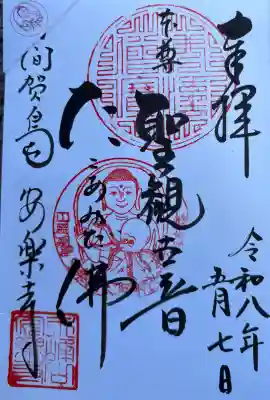 奉拝
令和八年
五月七日
本尊
聖観世音
だこあみだ佛
日間賀島
安楽寺